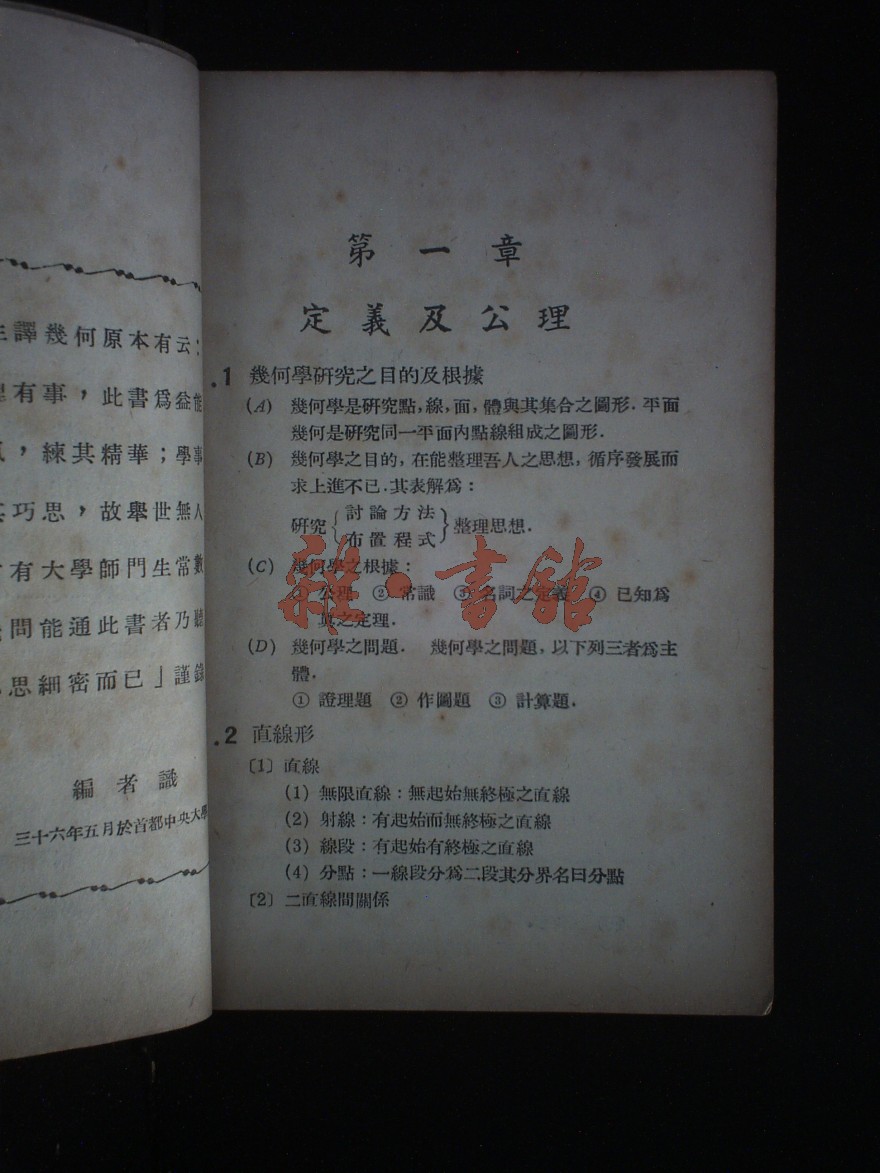 譯幾何原本有云：
有事，此書爲益能
，練其精華；學事
巧思，故舉世無人
有大學師門生常數
問能通此書者乃聽
思細密而已」謹錄
編者識
三十六年五月於首都中央大學
第一章
定義及公理
.1 幾何學研究之目的及根據
(A) 幾何學是研究點，線，面，體與其集合之圖形．平面
幾何是研究同一平面內點線組成之圖形．
(B) 幾何學之目的，在能整理吾人之思想，循序發展而
求上進不已．其表解爲：
研究{討論方法 布置程式}整理思想．
(C) 幾何學之根據：
① 公理 ② 常識 ③ 名詞之定義 ④ 已知爲
眞之定理．
(D) 幾何學之問題． 幾何學之問題，以下列三者爲主
體．
① 證理題 ② 作圖題 ③ 計算題．
.2 直線形
〔1〕直線
(1) 無限直線：無起始無終極之直線
(2) 射線：有起始而無終極之直線
(3) 線段：有起始有終極之直線
(4) 分點：一線段分爲二段其分界名曰分點
〔2〕二直線間關係
雜·書館